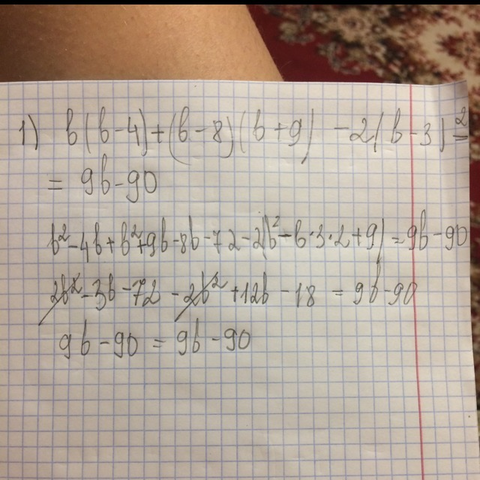 1) b(b-4)+(b-8)(b+9) -2(b-3)²=
= 9b-90
b²-4b+b²+9b-8b-72-2(b²-b·3·2+9)=9b-90
2b²-3b-72-2b²+12b-18=9b-90
9b-90=9b-90